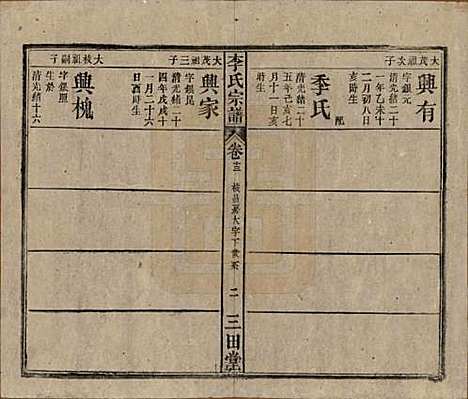 大茂祖次子
興有
字銀元
清光緒二十
一年乙未十
二月初八日
亥時生
季氏
配
清光緒二十
五年己亥七
月十一日亥
時生
李氏宗譜
卷
核昌
大字下世系
二
三田堂
大茂祖三子
興家
字銀昆
清光緒二十
四年戊戌十
一月二十六
日酉時生
大核祖嗣子
興槐
字銀照
生於
清光緒十六